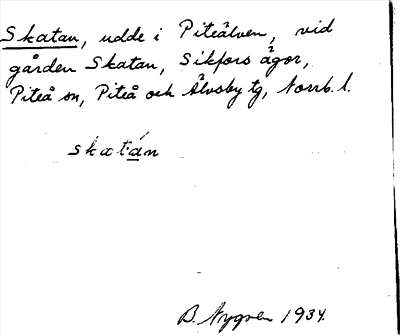 Skatan, udde i Piteälven, vid
gården Skatan, Sikfors ägor,
Piteå sn, Piteå och Älvsby tg, Norrb. l.
skatán
B. Nygren 1934.